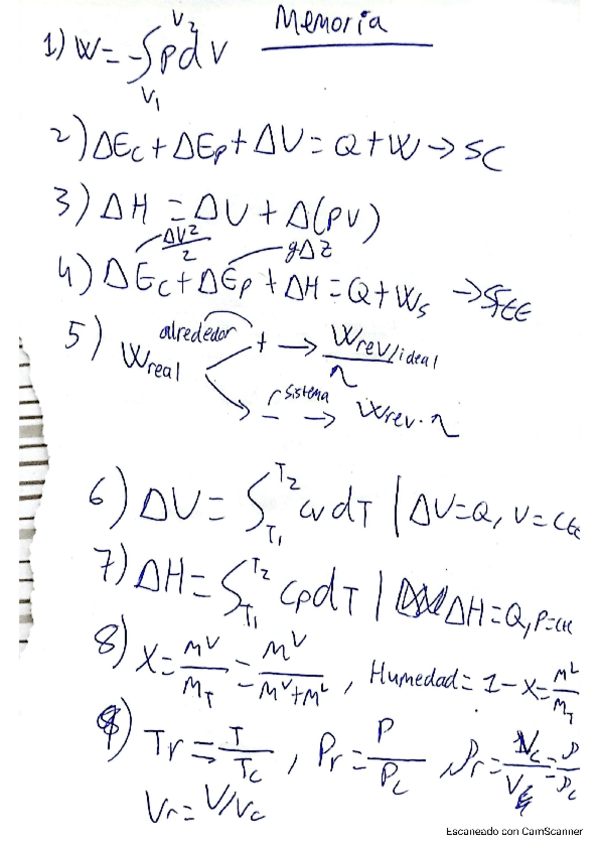 Memoria
1) W = -∫ V₁ V₂ p d V
2) ΔEc + ΔEp + ΔU = Q + W → SC
3) ΔH = ΔU + Δ(PV)
ΔV²/2 gΔz
4) ΔEc + ΔEp + ΔH = Q + Ws → SFEE
5) Wreal alrededor + → Wrev/ideal / η
sistema - → Wrev · η
6) ΔU = ∫ T₁ T₂ cv dT | ΔU = Q, V = cte
7) ΔH = ∫ T₁ T₂ cp dT | ΔH = Q, P = cte
8) X = Mⱽ/M_T = Mⱽ/(Mⱽ + Mᴸ), Humedad = 1 - X = Mᴸ/M_T
9) Tr = T/Tc, Pr = P/Pc, ρr = Vc/V = ρ/ρc
Vr = V/Vc
Escaneado con CamScanner